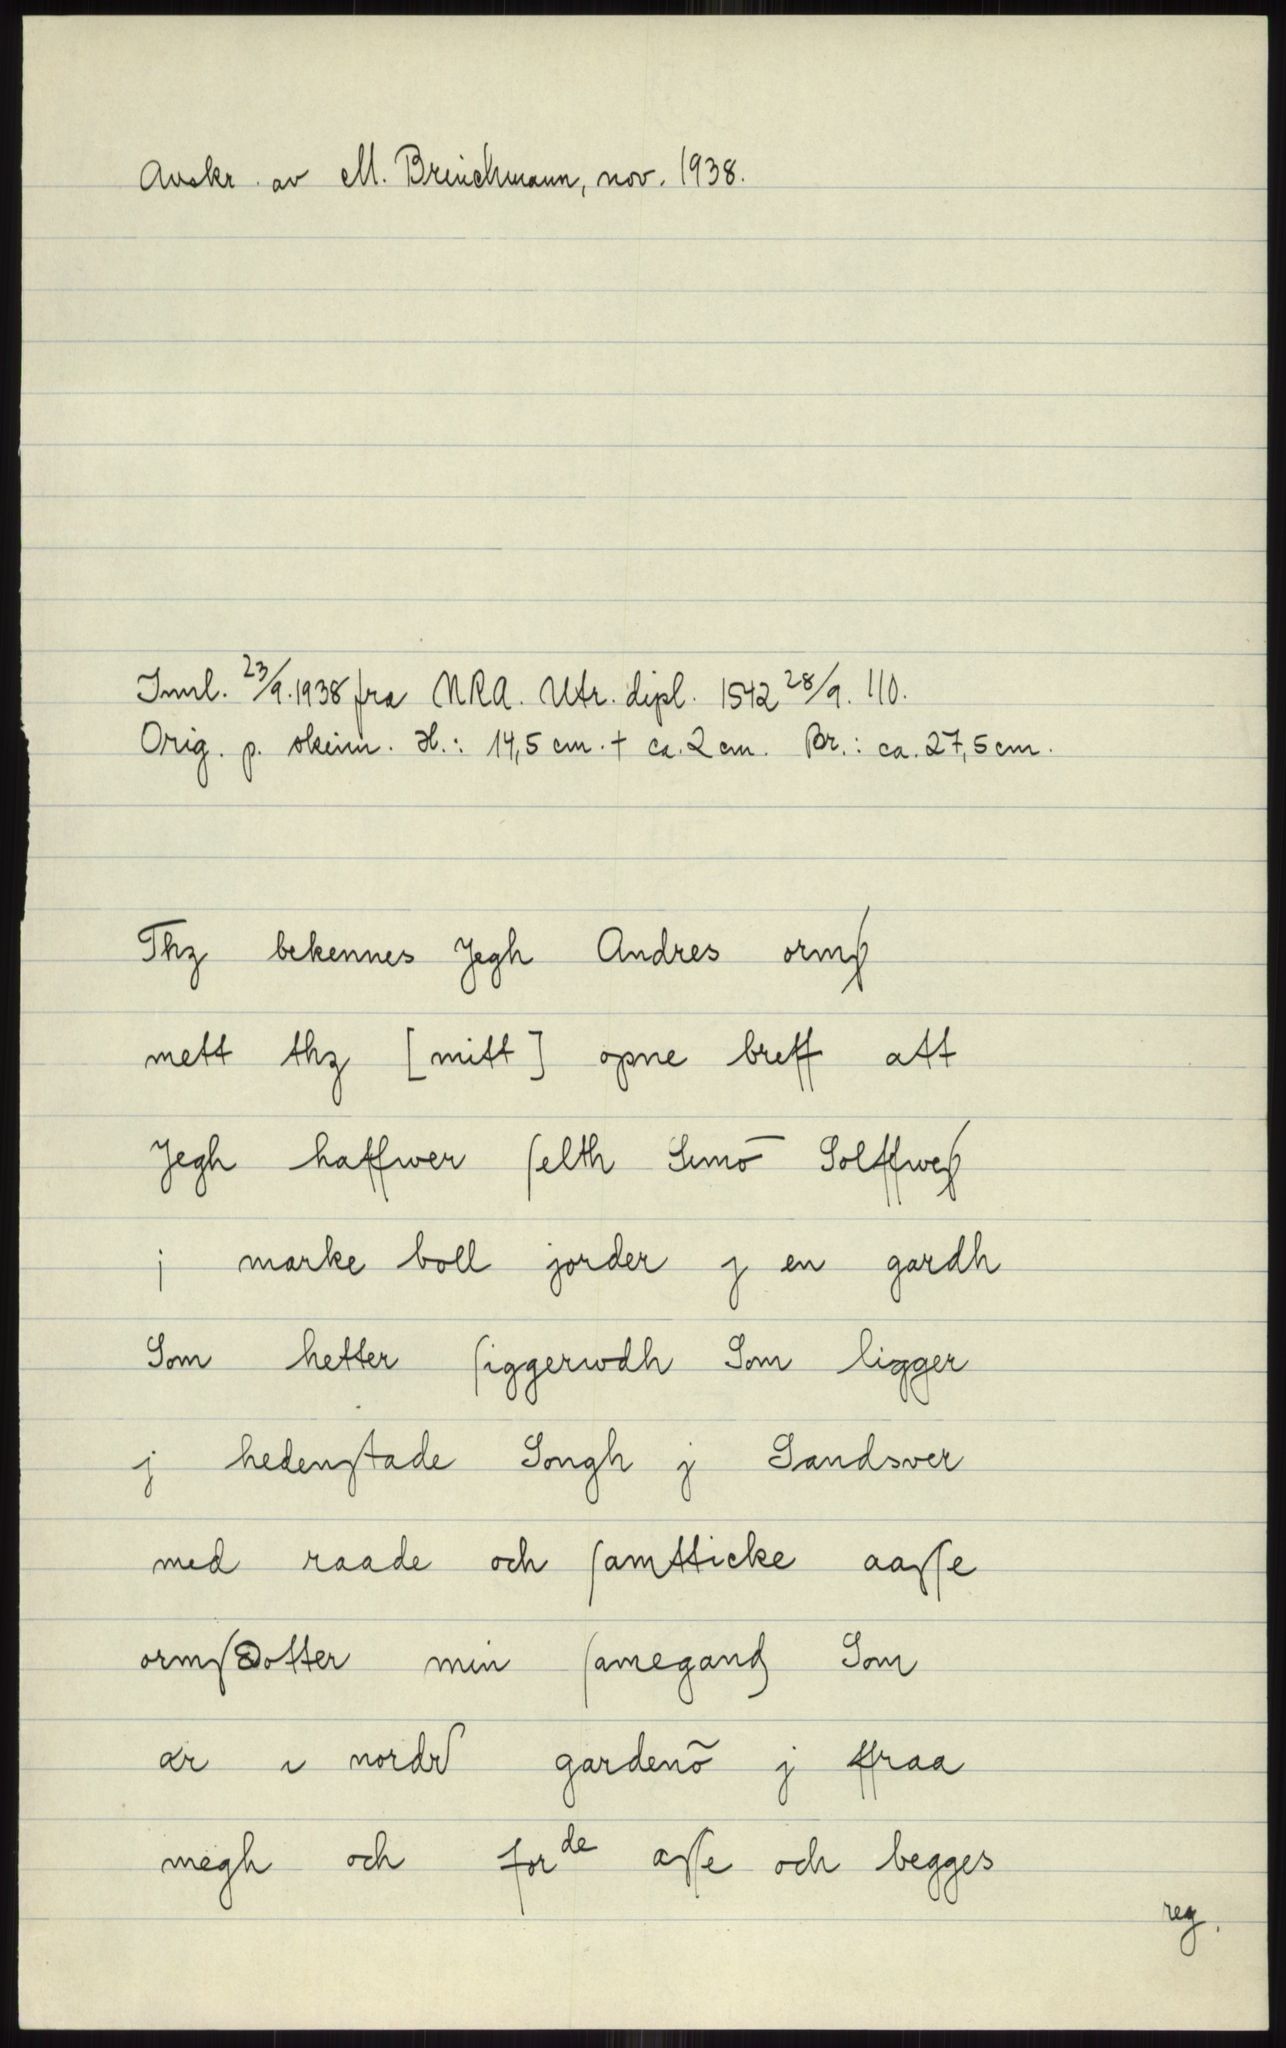 Avskr. av M. Brinchmann, nov. 1938.
Innl. 23/9. 1938 fra NRA. Utr. dipl. 1542 28/9. 110.
Orig. p. skinn. H.: 14,5 cm. + ca. 2 cm. Br.: ca. 27,5 cm.
Thz bekennes Jegh Andres ormß
mett thz [mitt] opne breff att
Jegh haffwer ſelth Simō Solffweß
j marke boll jorder j en gardh
Som hetter ſiggerwdh Som ligger
j hedenſtade Songh j Sandsver
med raade och ſamtticke aaſſe
ormſdotter min ſamegang Som
ær i nordr gardenō j ffraa
megh och forde aſſe och begges
reg.